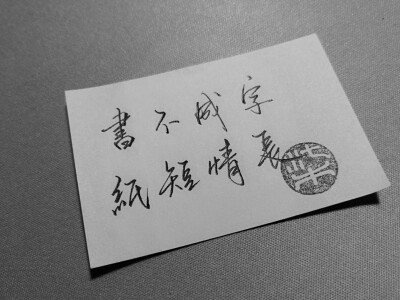 書不成字
紙短情長